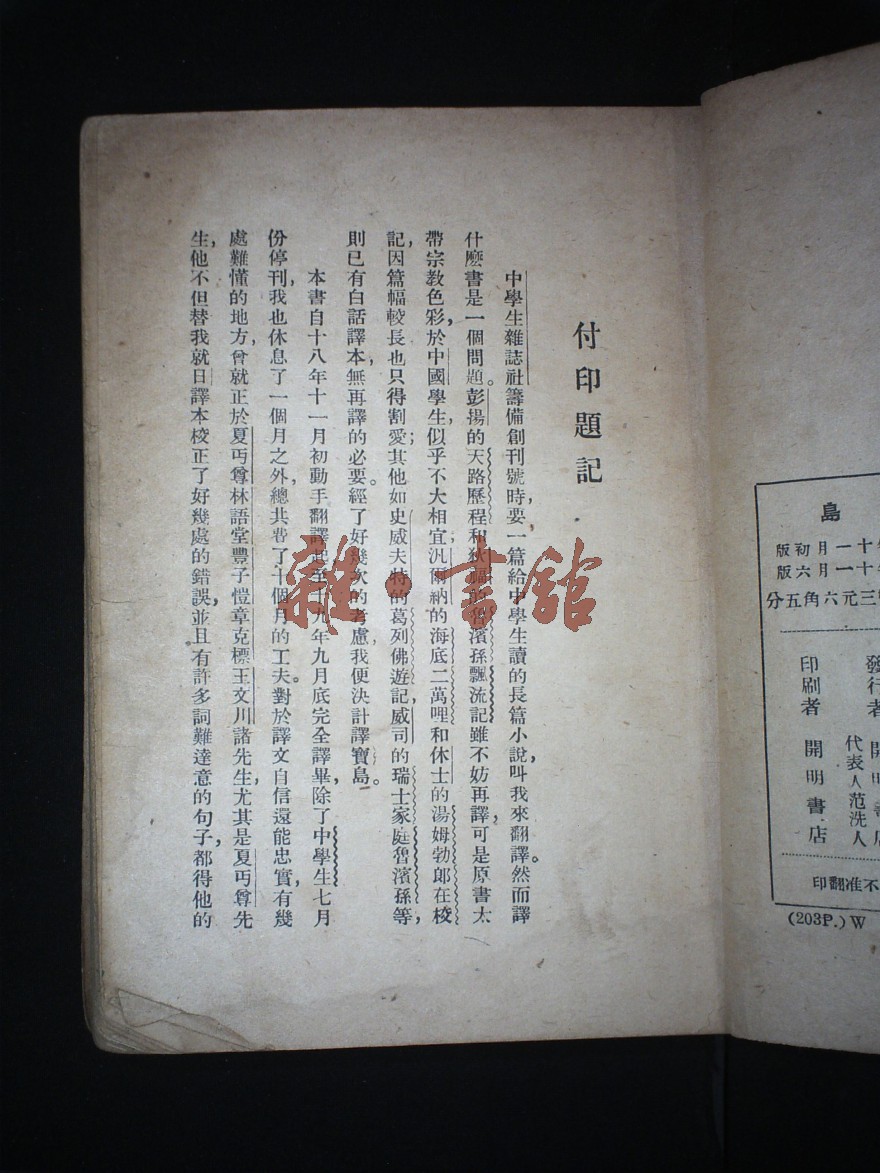 付印題記
中學生雜誌社籌備創刊號時，要一篇給中學生讀的長篇小說，叫我來翻譯。然而譯
什麼書是一個問題。彭揚的天路歷程和狄福的魯濱孫飄流記雖不妨再譯，可是原書太
帶宗教色彩，於中國學生，似乎不大相宜；汎爾納的海底二萬哩和休士的湯姆勃郎在校
記，因篇幅較長也只得割愛；其他如史威夫特的葛列佛遊記，威司的瑞士家庭魯濱孫等，
則已有白話譯本，無再譯的必要。經了好幾次的考慮，我便決計譯寶島。
本書自十八年十一月初動手翻譯起，至十九年九月底完全譯畢，除了中學生七月
份停刊，我也休息了一個月之外，總共費了十個月的工夫。對於譯文自信還能忠實，有幾
處難懂的地方，曾就正於夏丏尊林語堂豐子愷章克標王文川諸先生，尤其是夏丏尊先
生，他不但替我就日譯本校正了好幾處的錯誤，並且有許多詞難達意的句子，都得他的
雜·書館
島
十一月初版
十一月六版
三元六角五分
發行者
開明書店
代表人范洗人
印刷者 開明書店
不准翻印
(203P.) W